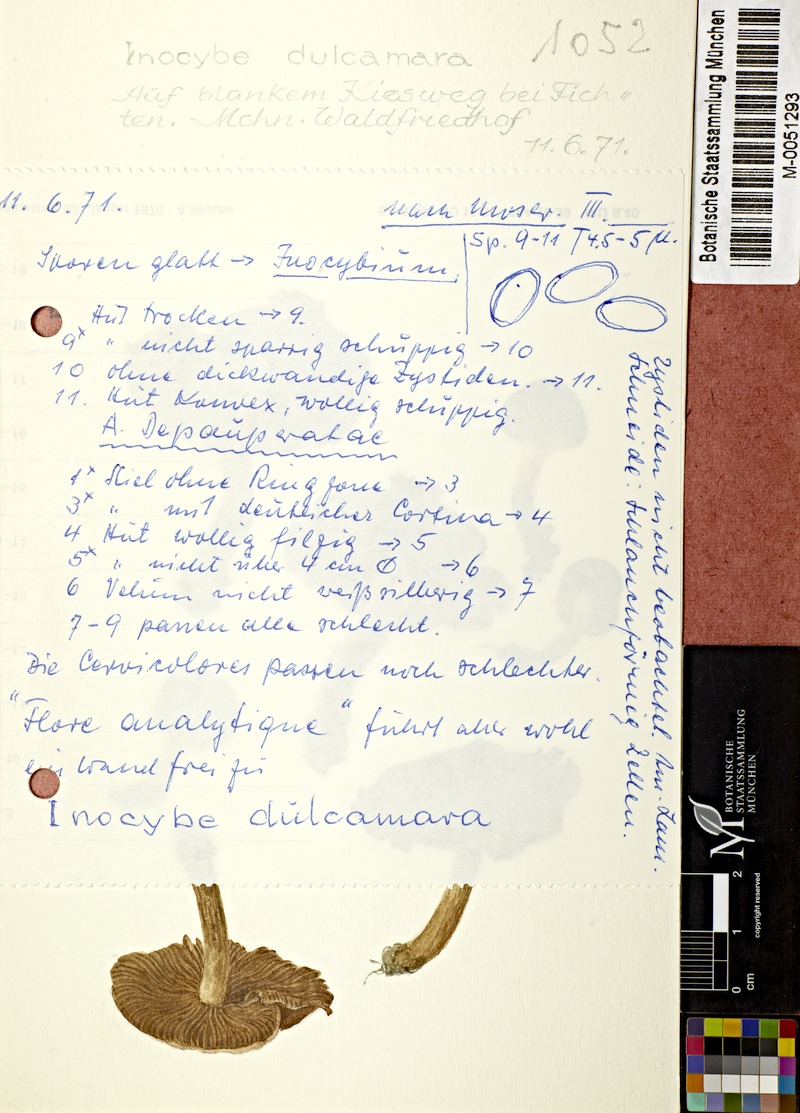 Inocybe dulcamara 1052
Auf blankem Kiesweg bei Fich-
ten. Mchn. Waldfriedhof
11.6.71.
11. 6. 71.
nach Moser III.
Sp. 9-11 / 4.5-5 µ.
Sporen glatt → Inocybium
Hut trocken → 9.
9x " nicht sparrig schuppig → 10
10 ohne dickwandige Zystiden. → 11.
11. Hut konvex, wollig schuppig.
A. Depauperatae
1x Stiel ohne Ringzone → 3
3x " mit deutlicher Cortina → 4
4 Hut wollig filzig → 5
5x " nicht über 4 cm Ø → 6
6 Velum nicht weißsilberig → 7
7-9 passen alle schlecht.
Die Cervicolores passen noch schlechter.
"Flore analytique" führt aber wohl
einwandfrei zu
Inocybe dulcamara
Zystiden nicht beobachtet. An Lam.
Schneide: schlauchförmige Zellen.
Botanische Staatssammlung München
M-0051293
BOTANISCHE
STAATSSAMMLUNG
MÜNCHEN
0 1 2
cm
copyright reserved